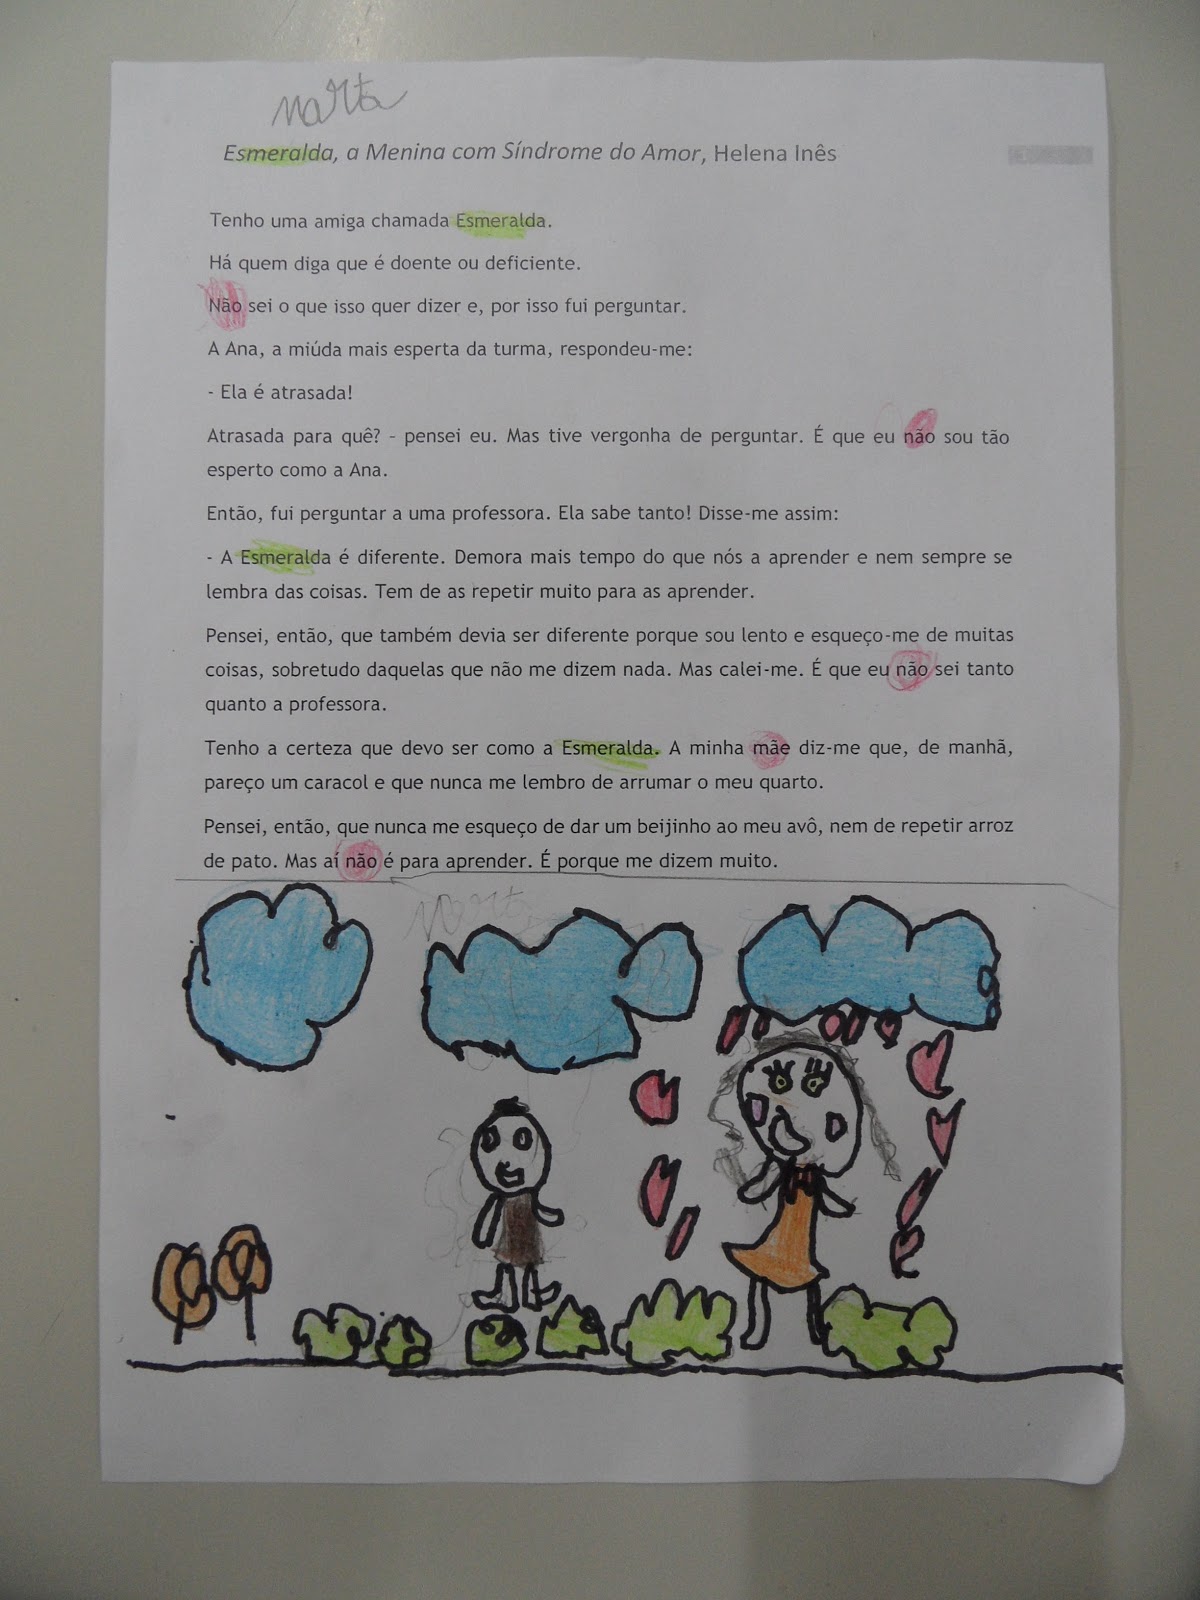 Marta
Esmeralda, a Menina com Síndrome do Amor, Helena Inês
Tenho uma amiga chamada Esmeralda.
Há quem diga que é doente ou deficiente.
Não sei o que isso quer dizer e, por isso fui perguntar.
A Ana, a miúda mais esperta da turma, respondeu-me:
- Ela é atrasada!
Atrasada para quê? – pensei eu. Mas tive vergonha de perguntar. É que eu não sou tão
esperto como a Ana.
Então, fui perguntar a uma professora. Ela sabe tanto! Disse-me assim:
- A Esmeralda é diferente. Demora mais tempo do que nós a aprender e nem sempre se
lembra das coisas. Tem de as repetir muito para as aprender.
Pensei, então, que também devia ser diferente porque sou lento e esqueço-me de muitas
coisas, sobretudo daquelas que não me dizem nada. Mas calei-me. É que eu não sei tanto
quanto a professora.
Tenho a certeza que devo ser como a Esmeralda. A minha mãe diz-me que, de manhã,
pareço um caracol e que nunca me lembro de arrumar o meu quarto.
Pensei, então, que nunca me esqueço de dar um beijinho ao meu avô, nem de repetir arroz
de pato. Mas aí não é para aprender. É porque me dizem muito.
Marta